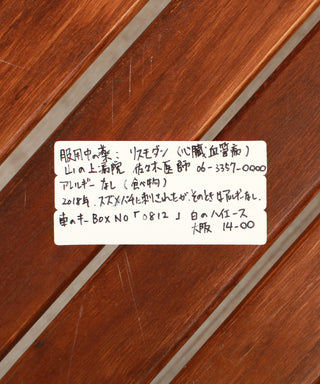 服用中の薬： リスモダン （心臓，血管病）
山の上病院 佐々木医師 06-3357-0000
アレルギー なし （食べ物）
2018年、スズメバチに刺されたが、そのときはアレルギーなし、
車のキー BOX NO 「0812」 白のハイエース
大阪 14-00